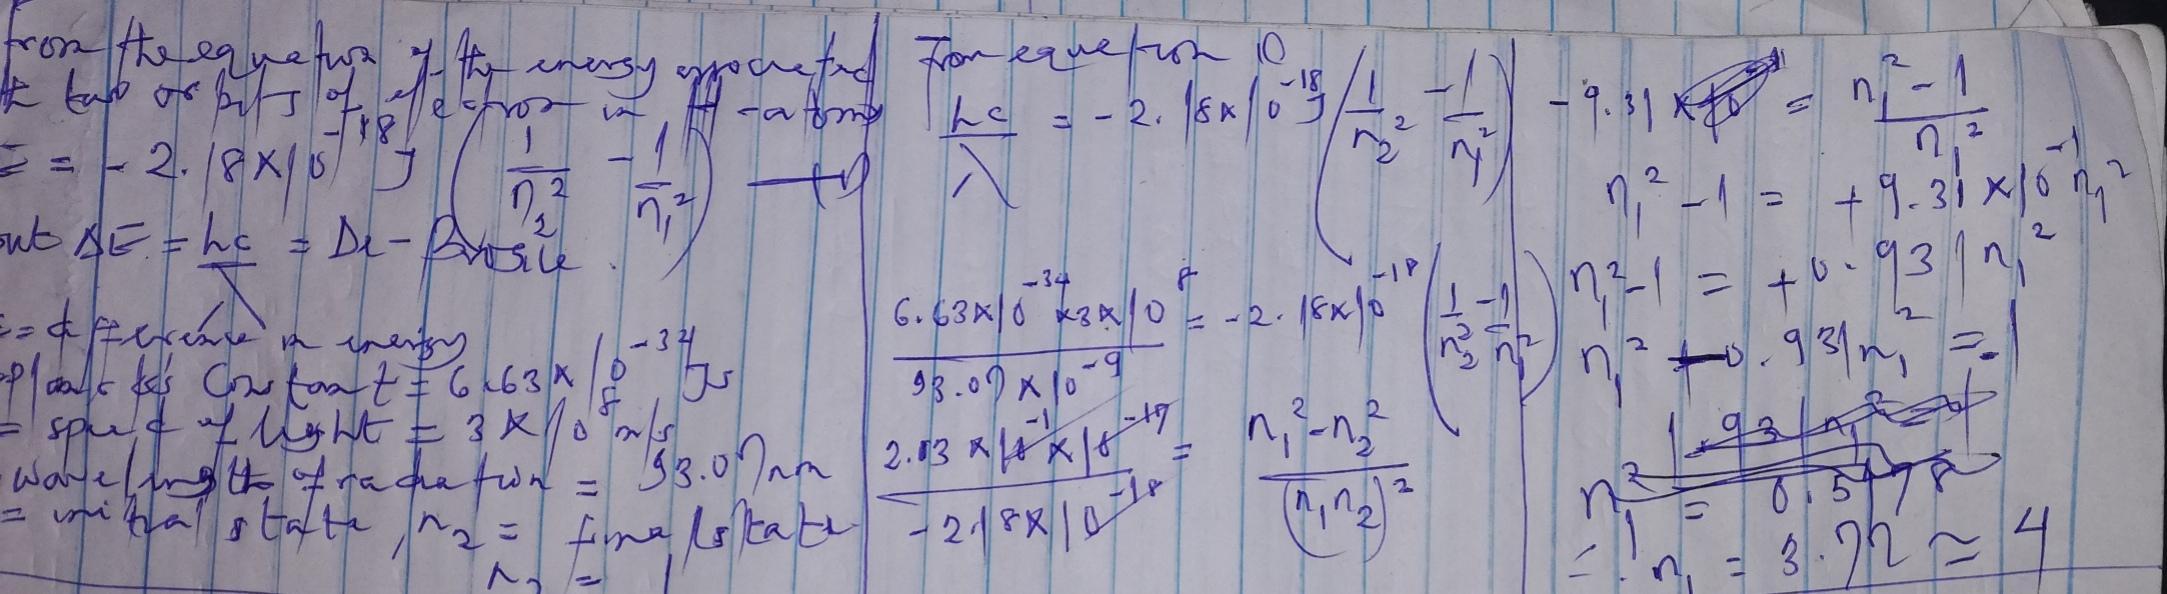 from the equation of the energy associated
two orbits of electron in H-atoms
= -2.18x10^-18 J (1/n₂² - 1/n₁²) → ①
but ΔE = hc/λ = De-Broglie.
= difference in energy
planck's Constant = 6.63x10^-34 Js
= speed of light = 3x10^8 m/s
wavelength of radiation = 93.07nm
= initial state, n₂ = final state
n₂ = 1
From equation ①
hc/λ = -2.18x10^-18 J (1/n₂² - 1/n₁²)
6.63x10^-34 x3x10^8 / 93.07x10^-9 = -2.18x10^-18 (1/n₂² - 1/n₁²)
2.13x10^-1 x10^-17 / -2.18x10^-18 = n₁²-n₂² / (n₁n₂)²
-9.31 x = n₁² - 1 / n₁²
n₁² - 1 = +9.31x10^-1 n₁²
n₁² - 1 = +0.931n₁²
n₁² - 0.931n₁² = 1
n₁ = 3.72 ≈ 4